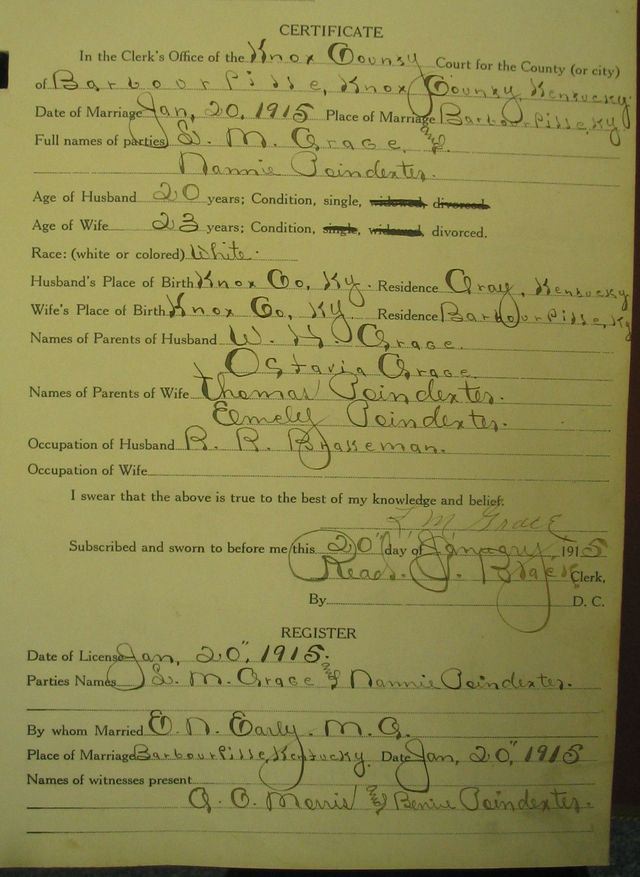 CERTIFICATE
In the Clerk's Office of the Knox County Court for the County (or city)
of Barbourville, Knox County, Kentucky.
Date of Marriage Jan, 20, 1915 Place of Marriage Barbourville, Ky
Full names of parties L. M. Grace, and
Nannie Poindexter.
Age of Husband 20 years; Condition, single, widowed, divorced.
Age of Wife 23 years; Condition, single, widowed, divorced.
Race: (white or colored) White.
Husband's Place of Birth Knox Co, Ky. Residence Gray, Kentucky
Wife's Place of Birth Knox Co, Ky. Residence Barbourville, Ky
Names of Parents of Husband W. H. Grace.
Octavia Grace.
Names of Parents of Wife Thomas Poindexter.
Emely Poindexter.
Occupation of Husband R. R. Brakeman.
Occupation of Wife
I swear that the above is true to the best of my knowledge and belief.
L M Grace
Subscribed and sworn to before me this 20" day of January, 1915
Read. Clerk,
By D. C.
REGISTER
Date of License Jan, 20", 1915.
Parties Names L. M. Grace and Nannie Poindexter.
By whom Married E. N. Early. M. G.
Place of Marriage Barbourville, Kentucky. Date Jan, 20," 1915
Names of witnesses present
Morris and Poindexter.